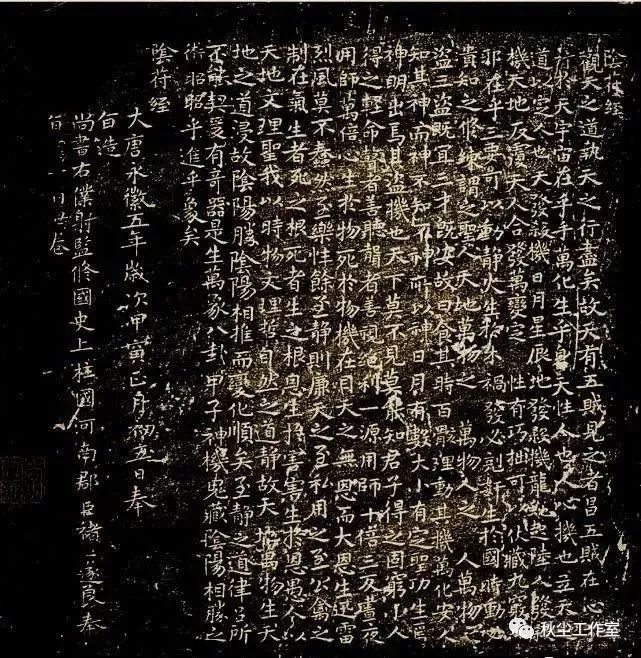 陰符經
觀天之道執天之行盡矣故天有五賊見之者昌五賊在心
行於天宇宙在乎手萬化生乎身天性人也人心機也立天
道以定人也天發殺機日月星辰地發殺機龍蛇起陸人發殺
機天地反覆天人合發萬變定性有巧拙可以伏藏九竅
邪在乎三要可以動靜火生於木禍發必剋姧生於國時動必
知之修練謂之聖人天地萬物之萬物人之人萬物之
盜三盜既宜三才既安故曰食其時百骸理動其機萬化安人
知其神而神不知不神所以神日月有數大小有定聖功生焉
神明出焉其盜機也天下莫不見莫能知君子得之固窮小人
得之輕命瞽者善聽聾者善視絕利一源用師十倍三反晝夜
用師萬倍心生於物死於物機在目天之無恩而大恩生迅雷
烈風莫不蠢然至樂性餘至靜則廉天之至私用之至公禽之
制在氣生者死之根死者生之根恩生於害害生於恩愚人以
天地文理聖我以時物文理哲自然之道靜故天地萬物生天
地之道浸故陰陽勝陰陽相推而變化順矣至靜之道律呂所
不能契爰有奇器是生萬象八卦甲子神機鬼藏陰陽相勝之
術昭昭乎進乎象矣
陰符經
大唐永徽五年歲次甲寅正月初五日奉
旨造
尚書右僕射監修國史上柱國河南郡臣褚遂良奉
旨
秋尘工作室